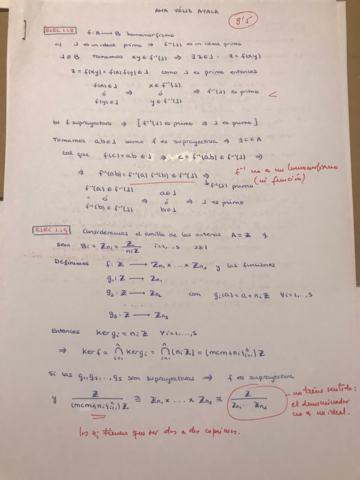 ANA VÉLIZ AYALA
8'5
EJERC 1.18 f: A → B homomorfismo
a) J es un ideal primo ⇒ f⁻¹(J) es un ideal primo
J ⊂ B Tomamos xy ∈ f⁻¹(J) ⇒ ∃ z ∈ J · z = f(xy)
z = f(xy) = f(x)f(y) ∈ J como J es primo entonces
f(x) ∈ J x ∈ f⁻¹(J)
ó ⇒ ó ⇒ f⁻¹(J) es primo
f(y) ∈ J y ∈ f⁻¹(J)
b) f suprayectiva ⇒ [f⁻¹(J) es primo ⇒ J es primo]
Tomamos ab ∈ J como f es suprayectiva ⇒ ∃ c ∈ A
tal que f(c) = ab ∈ J ⇒ c = f⁻¹(ab) ∈ f⁻¹(J) ⇒
⇒ f⁻¹(ab) = f⁻¹(a) f⁻¹(b) ∈ f⁻¹(J) ⇒
f⁻¹ no es homomorfismo
(ni función)
f⁻¹(J) primo
f⁻¹(a) ∈ f⁻¹(J) a ∈ J
ó ⇒ ó ⇒ J es primo
f⁻¹(b) ∈ f⁻¹(J) b ∈ J
EJERC 1.19 Consideramos el anillo de los enteros A = Z y
sean Bi = Zni = Z/niZ i=1,..,s s≥1
Definimos f: Z → Zn1 × ... × Zns y las funciones
g1: Z → Zn1
g2: Z → Zn2 con gi(a) = a + niZ ∀i=1,..,s
gs: Z → Zns
Entonces ker gi = niZ ∀i=1,..,s
⇒ ker f = ∩ ker gi = ∩ (niZ) = (mcm{ni}) Z
Si las g1, g2, ..., gs son suprayectivas ⇒ f es suprayectiva
y Z/(mcm{ni})Z ≅ Zn1 × ... × Zns ≅ Z/Zn1 ... Zns
no tiene sentido:
el denominador
no es ideal.
los ni tienen que ser dos a dos coprimos.